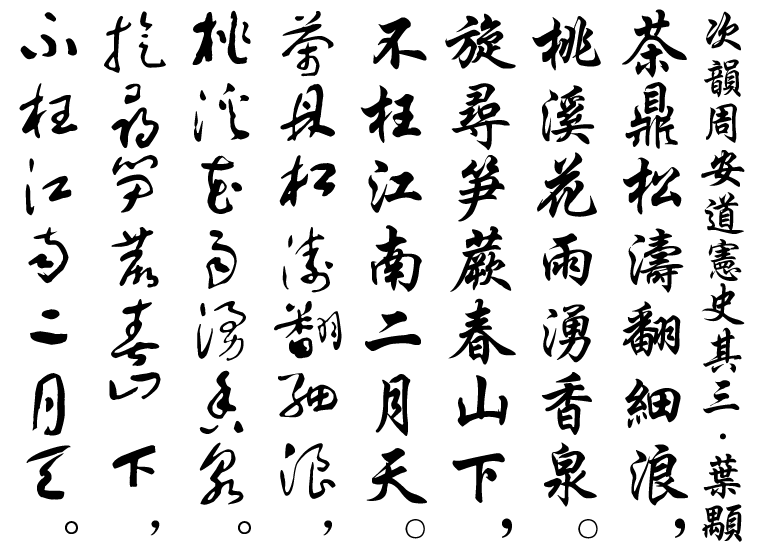 次韻周安道憲史其三·葉顒
茶鼎松濤翻細浪，
桃溪花雨湧香泉。
旋尋笋蕨春山下，
不枉江南二月天。
茶鼎松濤翻細浪，
桃溪花雨湧香泉。
旋尋笋蕨春山下，
不枉江南二月天。